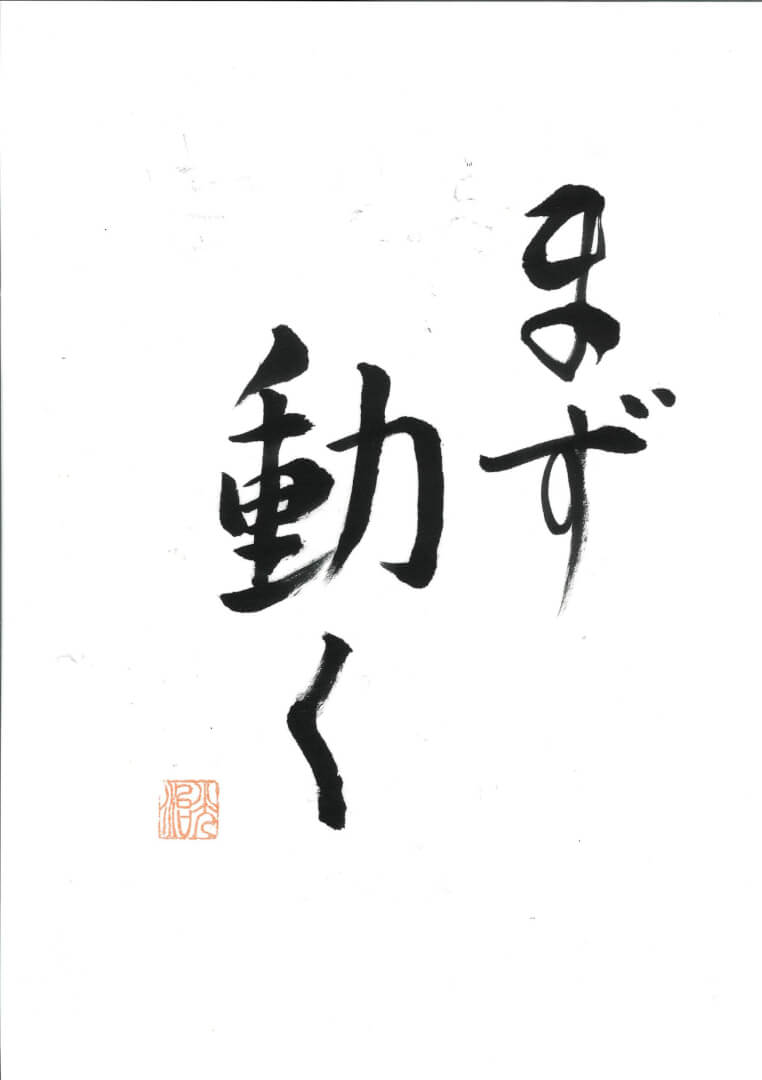 まず
動く